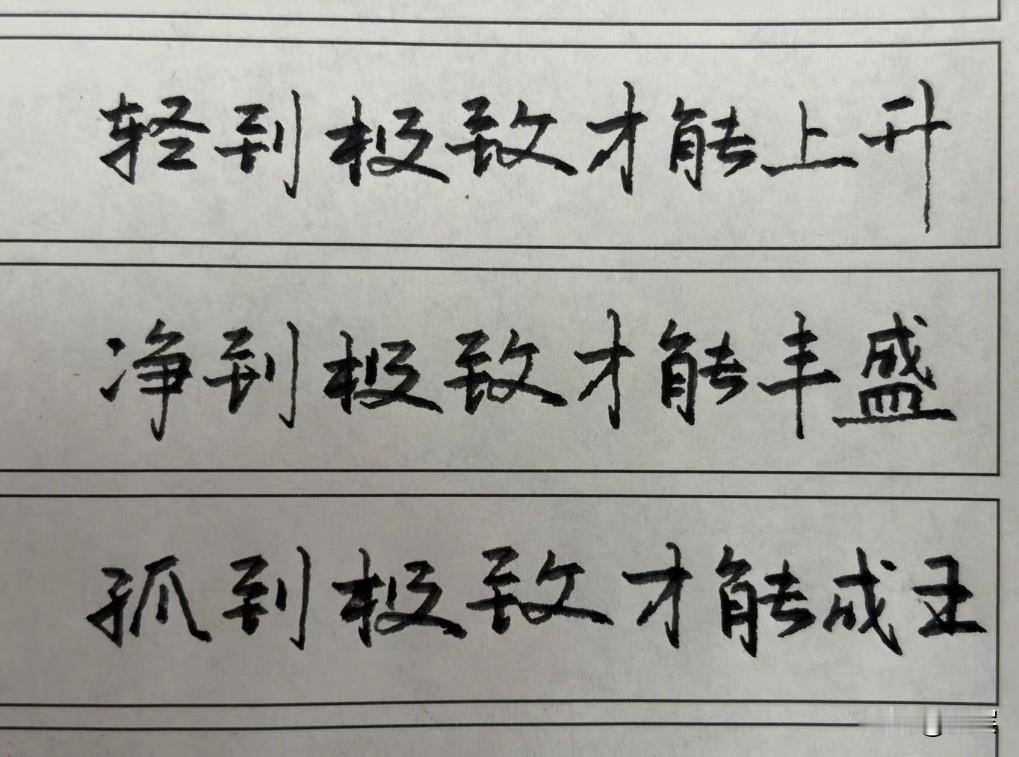 轻到极致才能上升
净到极致才能丰盛
孤到极致才能成王